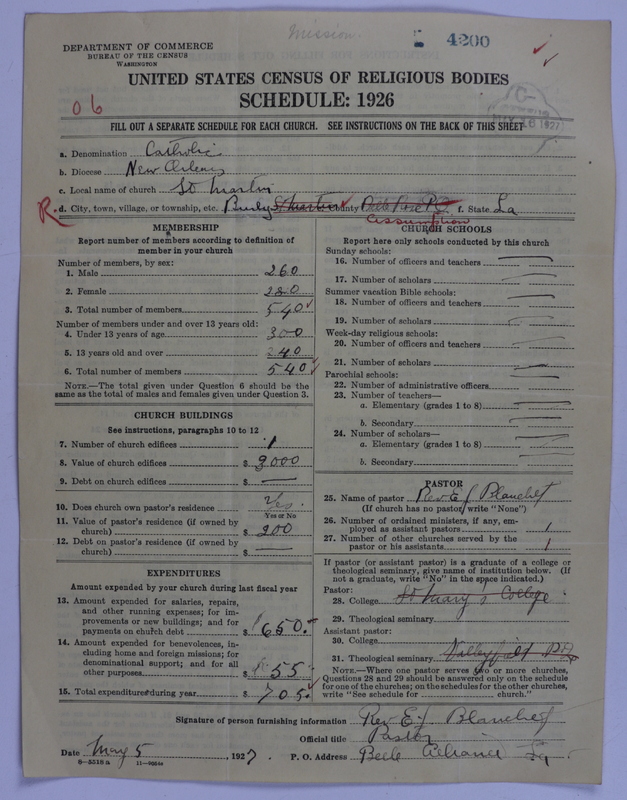 Mission.
4200
DEPARTMENT OF COMMERCE
BUREAU OF THE CENSUS
WASHINGTON
UNITED STATES CENSUS OF RELIGIOUS BODIES
SCHEDULE: 1926
06
FILL OUT A SEPARATE SCHEDULE FOR EACH CHURCH. SEE INSTRUCTIONS ON THE BACK OF THIS SHEET
a. Denomination Catholic
b. Diocese New Orleans
c. Local name of church St Martin
R. d. City, town, village, or township, etc. St Martin County P.O. f. State La
Assumption
MEMBERSHIP
Report number of members according to definition of
member in your church
Number of members, by sex:
1. Male 260
2. Female 280
3. Total number of members 540
Number of members under and over 13 years old:
4. Under 13 years of age 300
5. 13 years old and over 240
6. Total number of members 540
NOTE.—The total given under Question 6 should be the
same as the total of males and females given under Question 3.
CHURCH BUILDINGS
See instructions, paragraphs 10 to 12
7. Number of church edifices 1
8. Value of church edifices $ 3000
9. Debt on church edifices $ —
10. Does church own pastor's residence Yes.
Yes or No
11. Value of pastor's residence (if owned by
church) $ 200
12. Debt on pastor's residence (if owned by
church) $ —
EXPENDITURES
Amount expended by your church during last fiscal year
13. Amount expended for salaries, repairs,
and other running expenses; for im-
provements or new buildings; and for
payments on church debt $ 650.
14. Amount expended for benevolences, in-
cluding home and foreign missions; for
denominational support; and for all
other purposes $ 55
15. Total expenditures during year $ 705.
CHURCH SCHOOLS
Report here only schools conducted by this church
Sunday schools:
16. Number of officers and teachers —
17. Number of scholars —
Summer vacation Bible schools:
18. Number of officers and teachers —
19. Number of scholars —
Week-day religious schools:
20. Number of officers and teachers —
21. Number of scholars —
Parochial schools:
22. Number of administrative officers —
23. Number of teachers—
a. Elementary (grades 1 to 8) —
b. Secondary —
24. Number of scholars—
a. Elementary (grades 1 to 8) —
b. Secondary —
PASTOR
25. Name of pastor Rev. E J Blanchet
(If church has no pastor, write "None")
26. Number of ordained ministers, if any, em-
ployed as assistant pastors 1
27. Number of other churches served by the
pastor or his assistants 1
If pastor (or assistant pastor) is a graduate of a college or
theological seminary, give name of institution below. (If
not a graduate, write "No" in the space indicated.)
Pastor:
28. College St Mary's College
29. Theological seminary
Assistant pastor:
30. College
31. Theological seminary Valleyfield P.Q.
NOTE.—Where one pastor serves two or more churches,
Questions 28 and 29 should be answered only on the schedule
for one of the churches; on the schedules for the other churches,
write "See schedule for church."
Signature of person furnishing information Rev E. J Blanchet
Official title Pastor
Date May 5, 1927. P. O. Address Belle Alliance La
8—5518a 11—9034